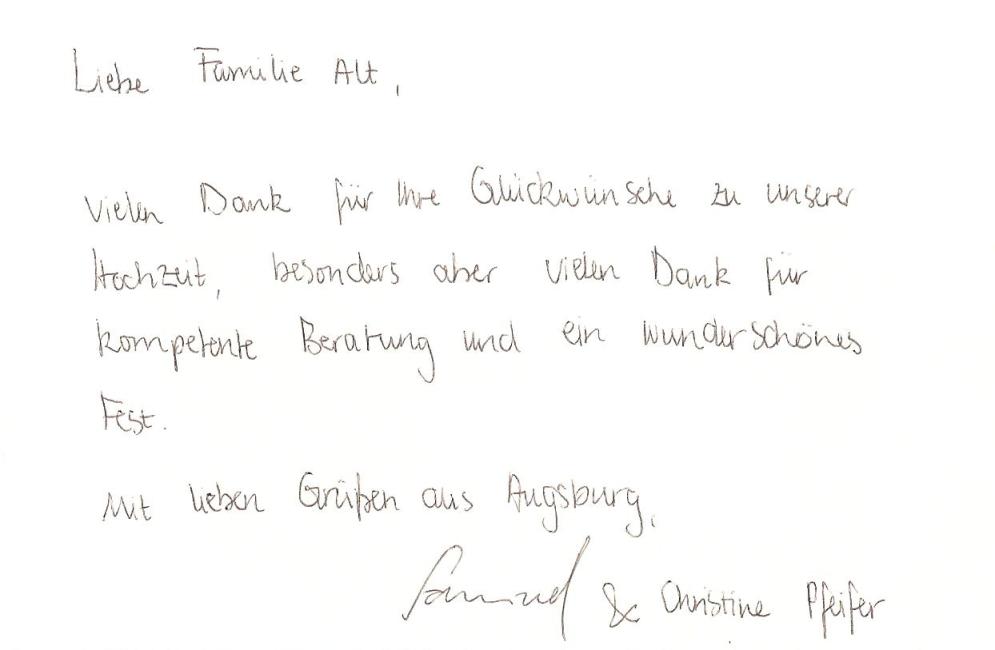 Liebe Familie Alt,
Vielen Dank für Ihre Glückwünsche zu unserer
Hochzeit, besonders aber vielen Dank für
kompetente Beratung und ein wunderschönes
Fest.
Mit lieben Grüßen aus Augsburg,
Samuel & Christine Pfeifer